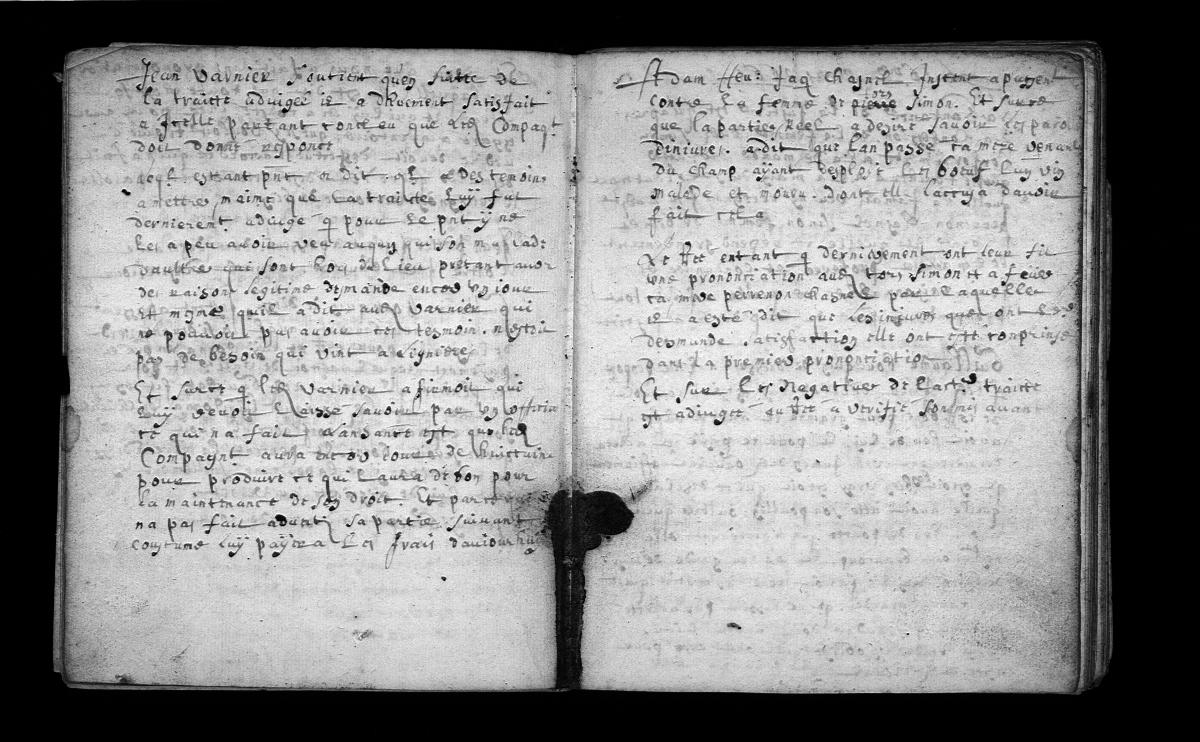 Jean Varnier Soutient quen suitte de
la traitte adiugee il a dhuement satisfait
a Jcelle partant conclu que led Compagt
doit donner responce
Leql. estant pnt. a dit ql. a des temoins
a mettre, mais que la traitte luÿ fut
dernierent. adiugé q pour le pnt ÿ ne
les a peu avoir
vaultre qui sont hors de lieu pretant avoir
des raisons legitime demande encor un iour
Et mesme quil a dit aud Varnier qui
ne pouvoit pas avoir ces tesmoin. n estoit
pas de besoin qui vint a Lignieres
Et surce q led Varnier afirmoit qui
luÿ devoit laisse savoir par un officier
ce qui na fait Lansance est que led
Compagnt. aura encor iour de huictaine
pour produire ce qui laura de bon pour
la maintenance de son droit. Et parce
na pas fait advertir sa partie suivant
coustume luÿ paÿera les frais dauiourhuÿ
Adam ffeu: Jaq Chasnel Instent apugent
Contre la femme de pierre Simon. Et surce
que la partie Reel. a desire savoir ces parol
diniures. a dit que lan passé sa mere venant
du champ aÿant desploié les boeuf lun vin
malade et mouru dont ell laccusa davoir
fait cela
Le ffet entant q dernierement ont leur fit
une prononciation aud cors Simon et a feue
sa mere perrenon Chasnel par laquelle
il a esté dit que les iniures quel ont led
desmande satisfaction elle ont esté comprinse
dans la premiere prononciation
Et sur les Negatives de lactr. traitte
est adiugee au ffet a verifié son mis avant